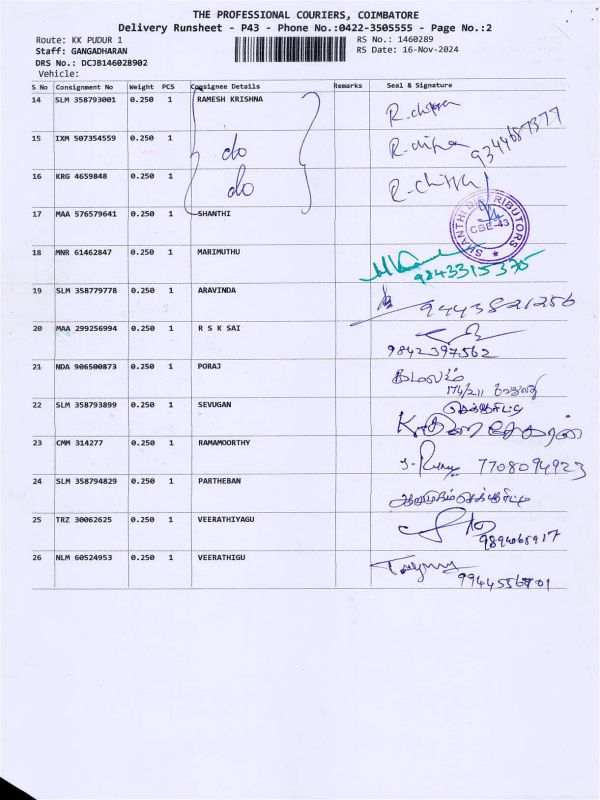 THE PROFESSIONAL COURIERS, COIMBATORE
Delivery Runsheet - P43 - Phone No.:0422-3505555 - Page No.:2
Route: KK PUDUR 1 RS No.: 1460289
Staff: GANGADHARAN RS Date: 16-Nov-2024
DRS No.: DCJB146028902
Vehicle:
S No Consignment No Weight PCS Consignee Details Remarks Seal & Signature
14 SLM 358793001 0.250 1 RAMESH KRISHNA
15 IXM 507354559 0.250 1 do 9344687377
16 KRG 4659848 0.250 1 do
17 MAA 576579641 0.250 1 SHANTHI SHANTHI DISTRIBUTORS CBE-43
18 MNR 61462847 0.250 1 MARIMUTHU 9843315375
19 SLM 358779778 0.250 1 ARAVINDA 9443821256
20 MAA 299256994 0.250 1 R S K SAI 9842397562
21 NDA 906500873 0.250 1 PORAJ
22 SLM 358793899 0.250 1 SEVUGAN
23 CMM 314277 0.250 1 RAMAMOORTHY 7708094923
24 SLM 358794829 0.250 1 PARTHEBAN
25 TRZ 30062625 0.250 1 VEERATHIYAGU
26 NLM 60524953 0.250 1 VEERATHIGU